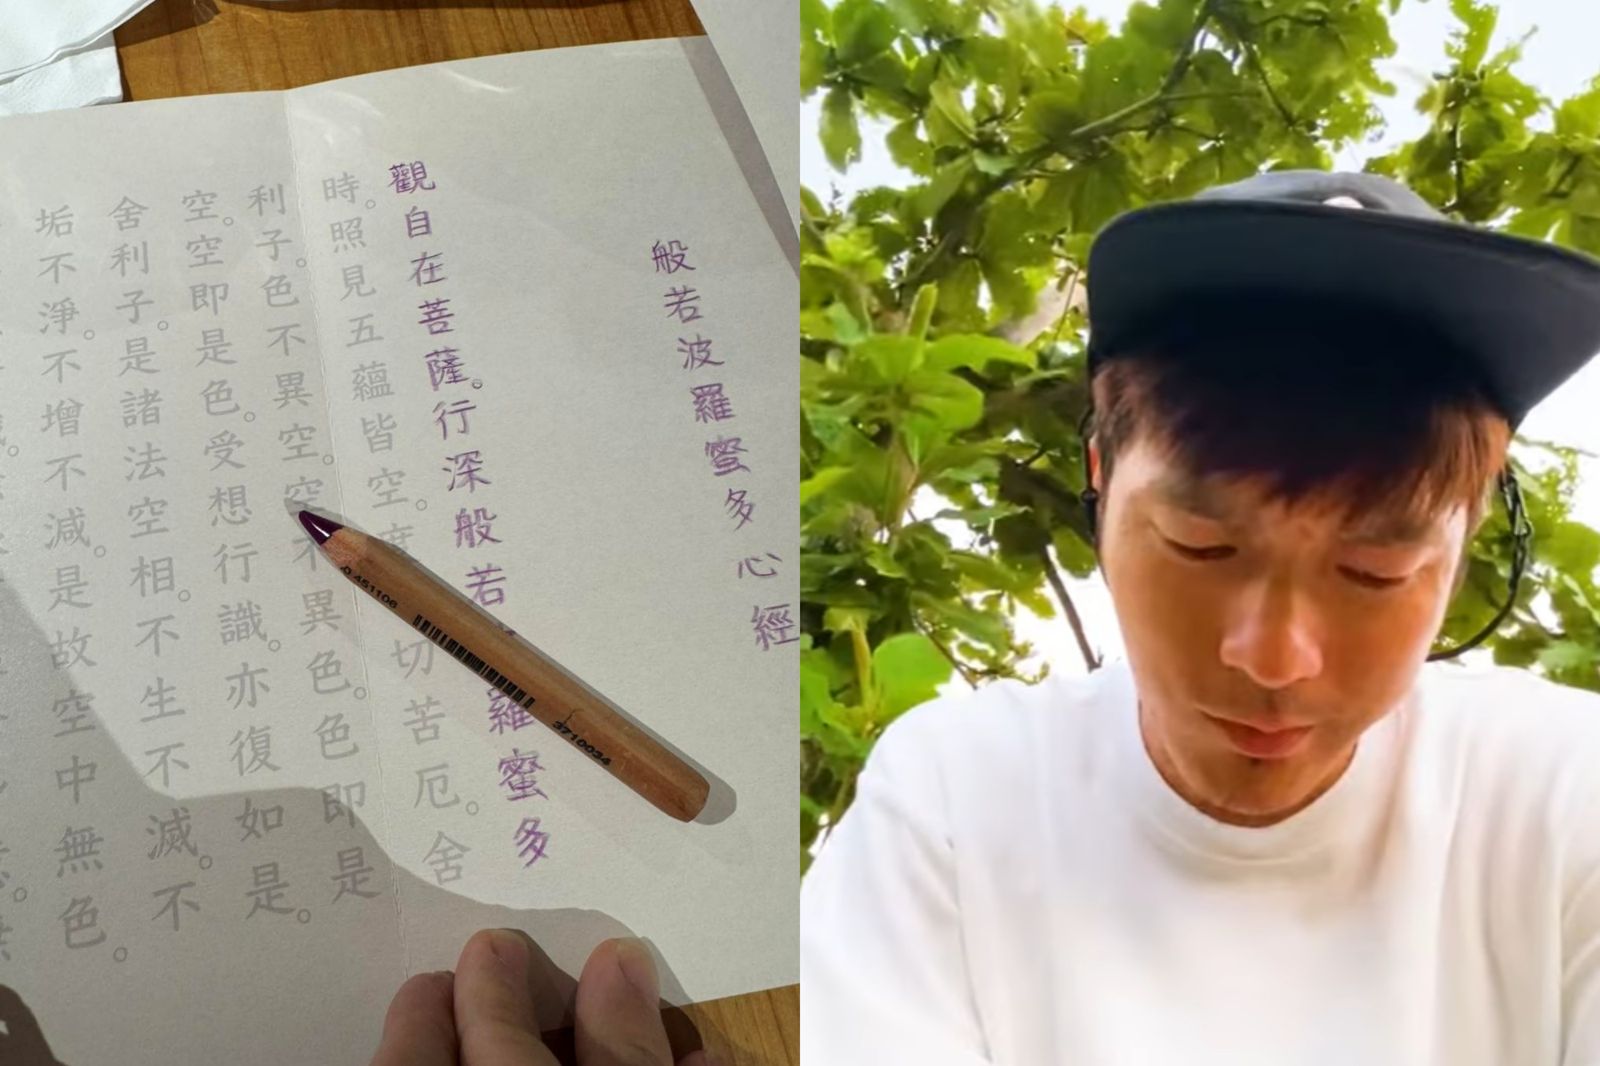 般若波羅蜜多心經
觀自在菩薩。行深般若羅蜜多
時。照見五蘊皆空。度切苦厄。舍
利子。色不異空。空不異色。色即是
空。空即是色。受想行識。亦復如是。
舍利子。是諸法空相。不生不滅。不
垢不淨。不增不減。是故空中無色。
451106
3710034